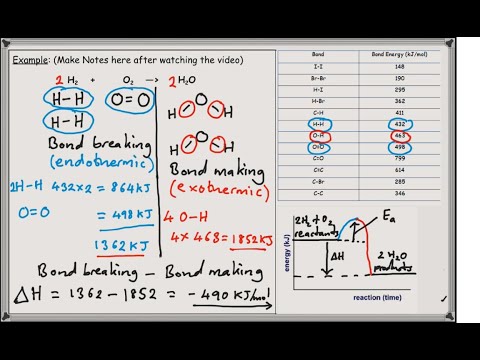 Example: (Make Notes here after watching the video)
2 H₂ + O₂ → 2 H₂O
H-H O=O
H-H
H O H
H O H
Bond breaking
(endothermic)
Bond making
(exothermic)
2H-H 432x2 = 864KJ
O=O = 498KJ
1362KJ
4 O-H
4x 463 = 1852KJ
Bond breaking - Bond making
ΔH = 1362 - 1852 = - 490 KJ/mol
Bond Bond Energy (kJ/mol)
I-I 148
Br-Br 190
H-I 295
H-Br 362
C-H 411
H-H 432
O-H 463
O=O 498
C=O 799
C=C 614
C-Br 285
C-C 346
energy (kJ)
2H₂ + O₂
reactants
Ea
ΔH
2 H₂O
products
reaction (time)